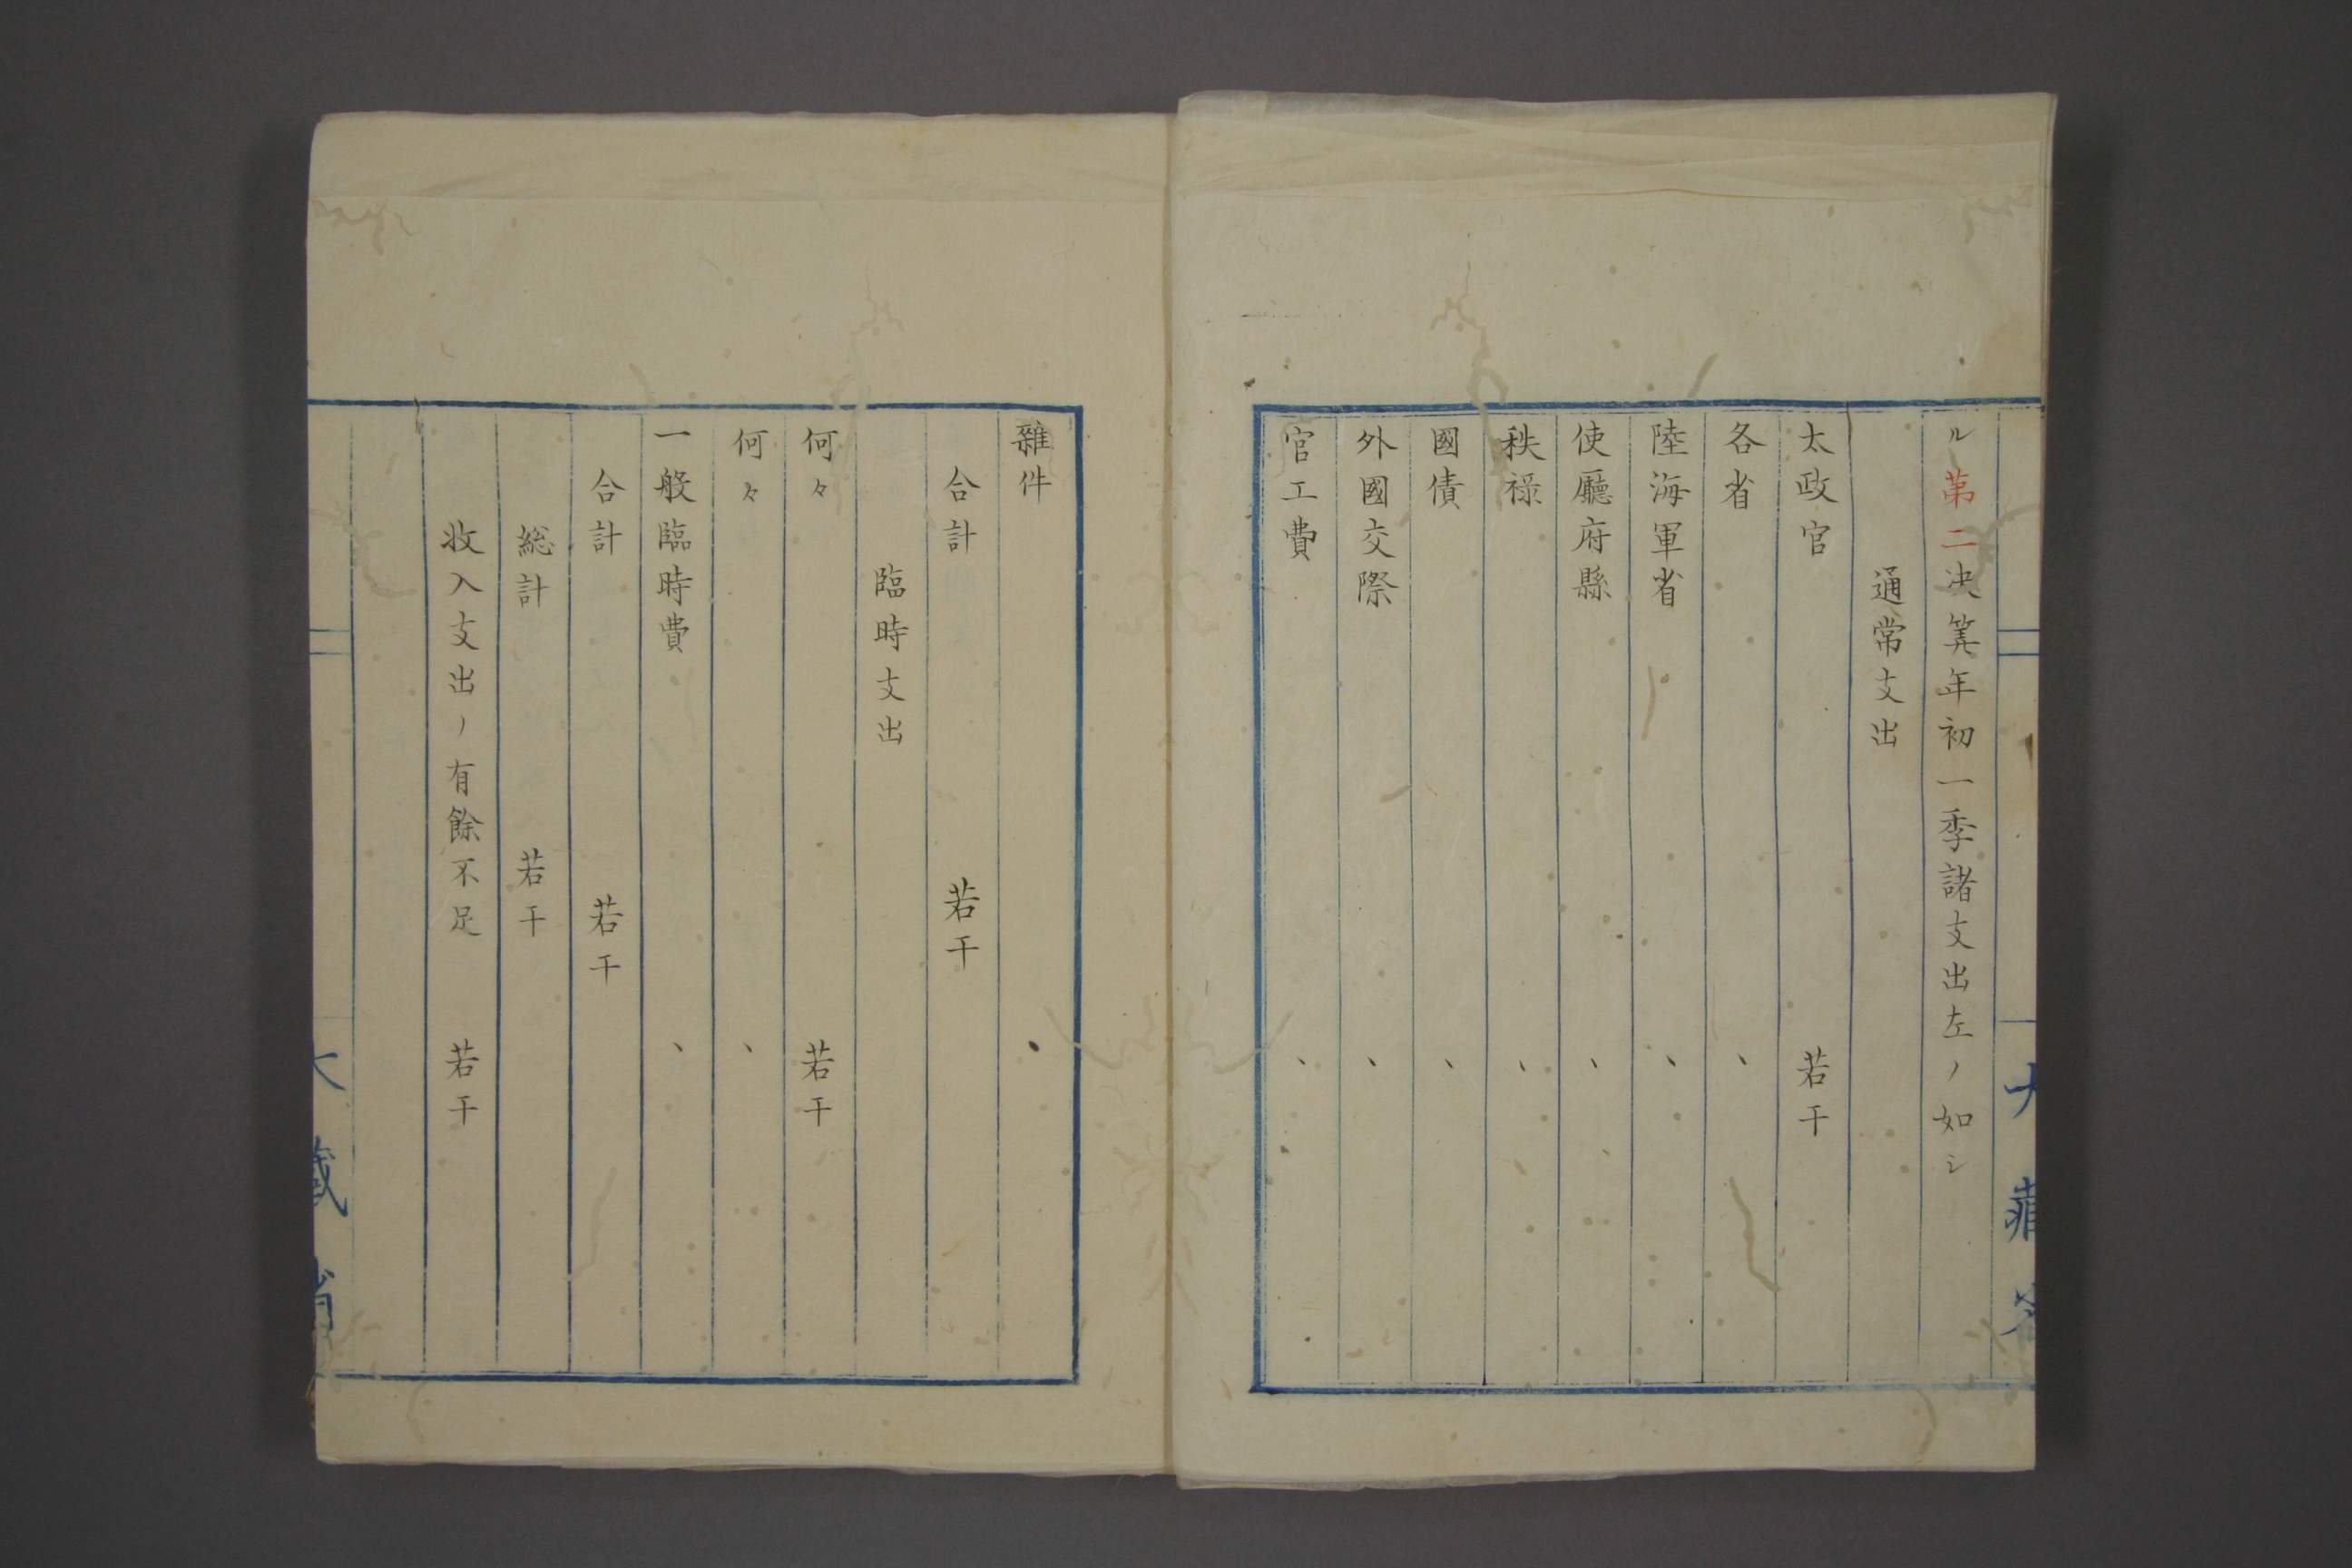 ル第二决筭年初一季諸支出左ノ如シ
通常支出
太政官 若干
各省 、
陸海軍省 、
使廳府縣 、
秩禄 、
國債 、
外國交際 、
官工費 、
雜件 、
合計 若干
臨時支出
何々 若干
何々 、
一般臨時費 、
合計 若干
総計 若干
收入支出ノ有餘不足 若干
大藏省